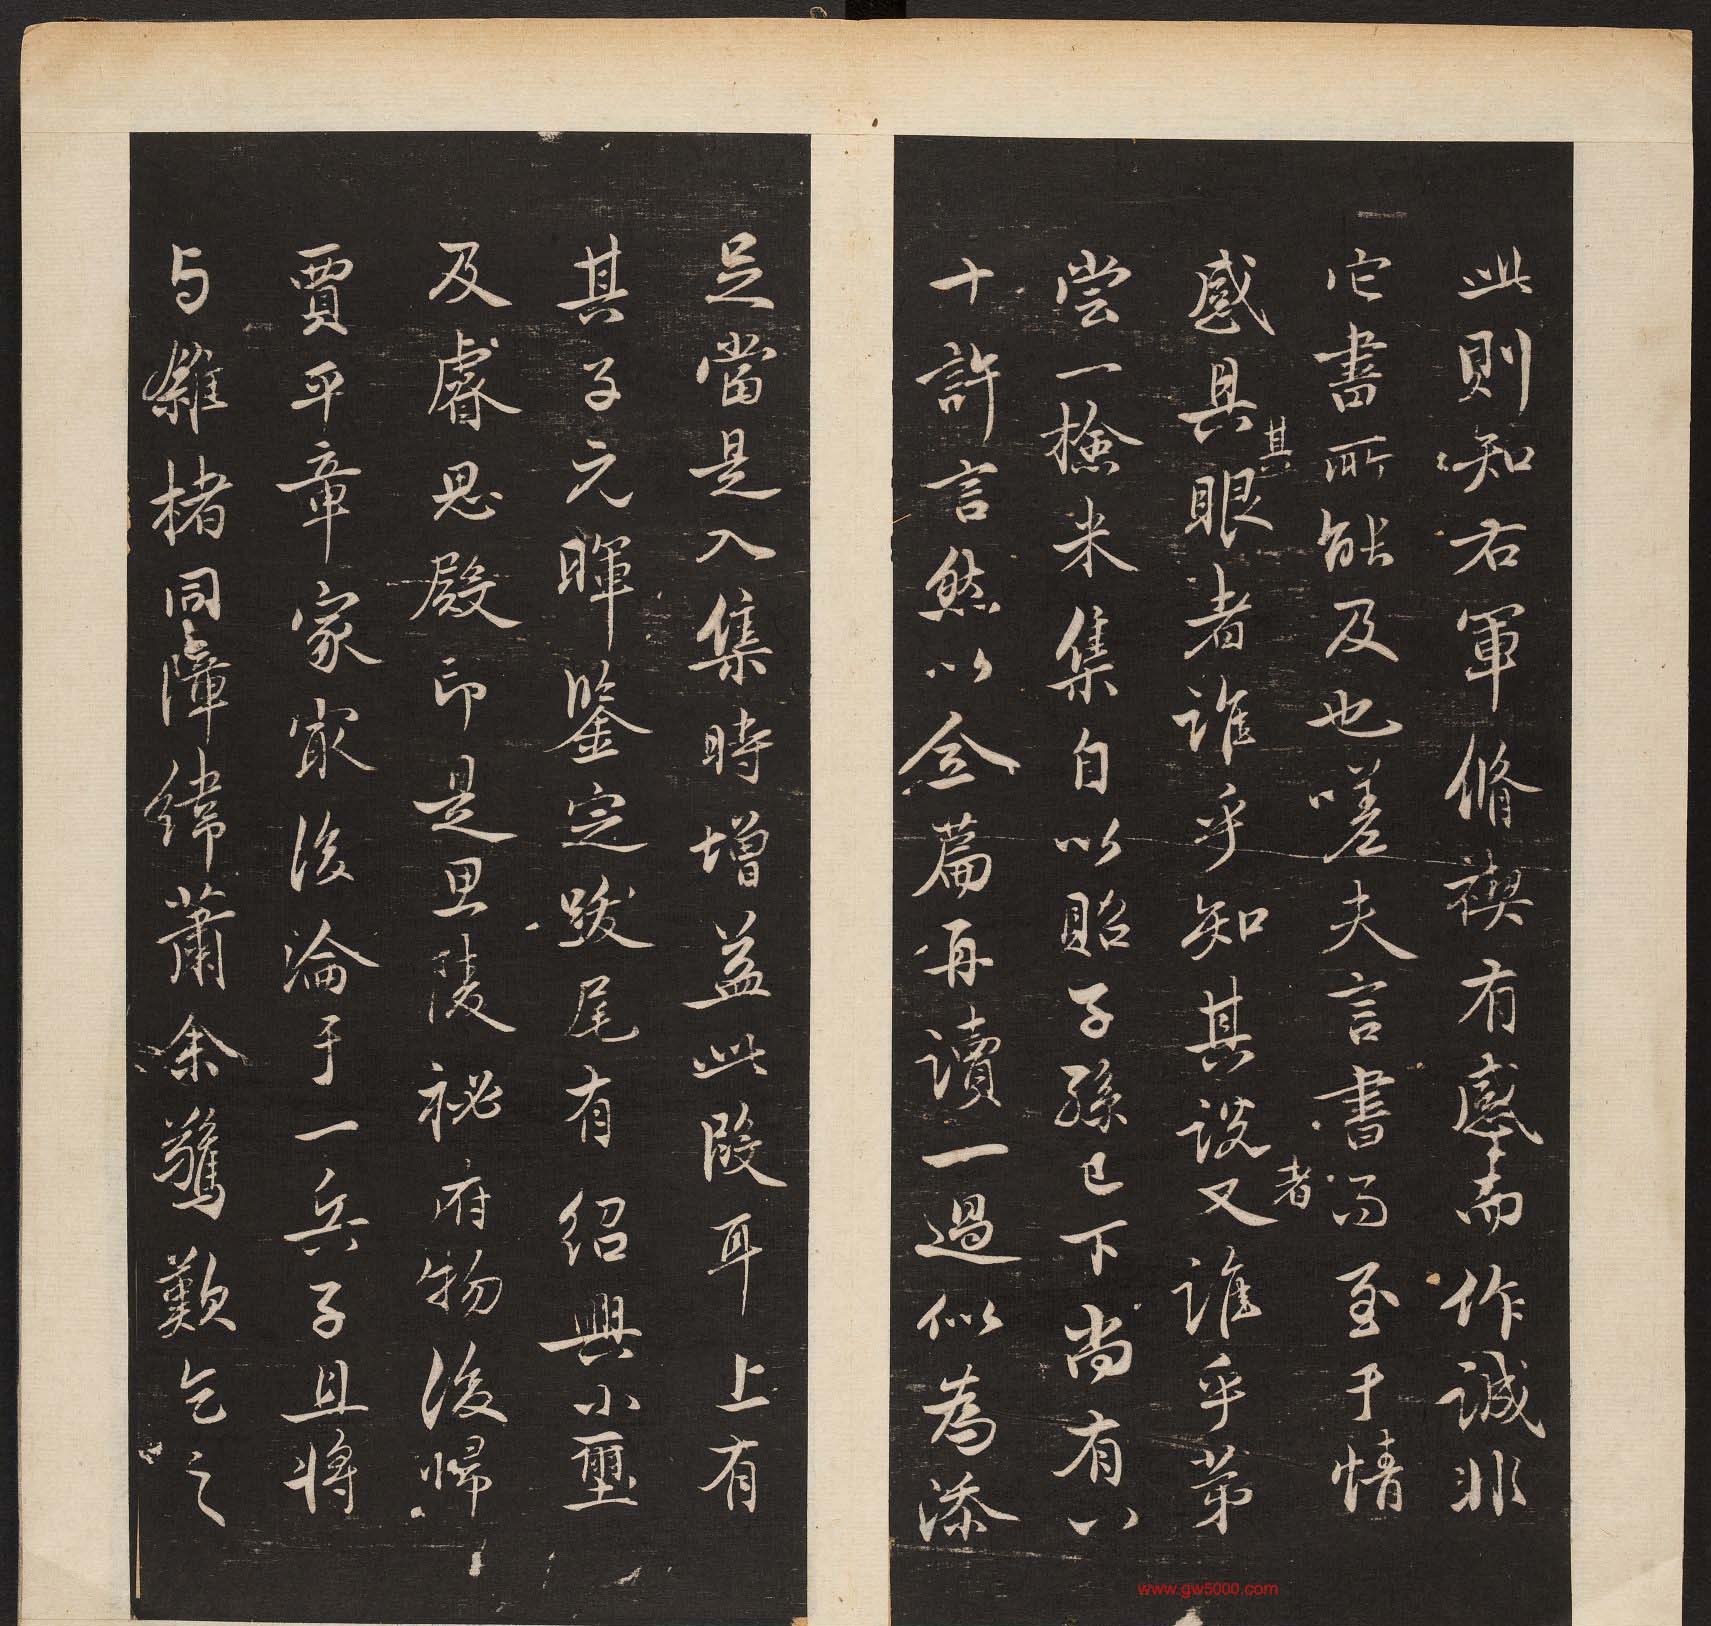 此則知右軍脩禊有感而作誠非
它書所能及也嗟夫言書而至于情
感具其眼者誰乎知其說者又誰乎苐
嘗一撿米集自以貽子孫已下尚有八
十許言然以全篇再讀一過似為添
足當是入集時增益此段耳上有
其子元暉鑒定跋尾有紹興小璽
及睿思殿印是思陵祕府物後歸
賈平章家家後淪于一兵子且將
与雜楮同障緯蕭余驚歎乞之
www.gw5000.com